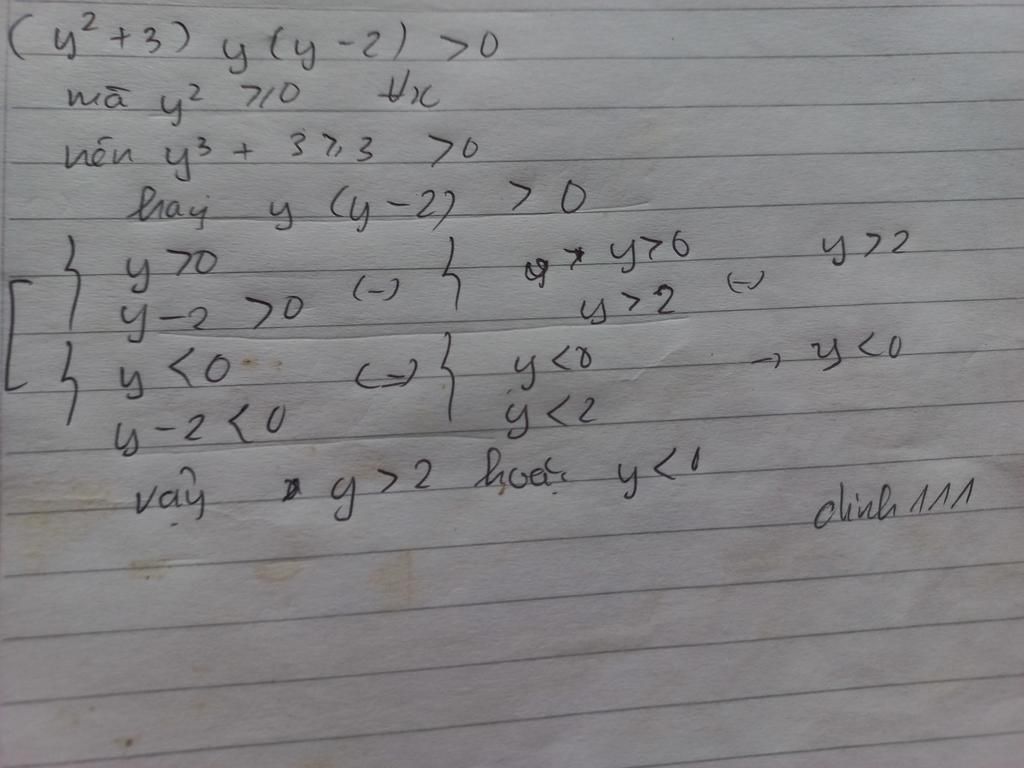 (y² + 3) y (y - 2) > 0
mà y² ≥ 0 ∀x
nên y³ + 3 ≥ 3 > 0
hay y (y - 2) > 0
y > 0 (-) y > 0 y > 2
y - 2 > 0 y > 2 (-)
y < 0 (-) y < 0 → y < 0
y - 2 < 0 y < 2
vậy y > 2 hoặc y <
dinh 111